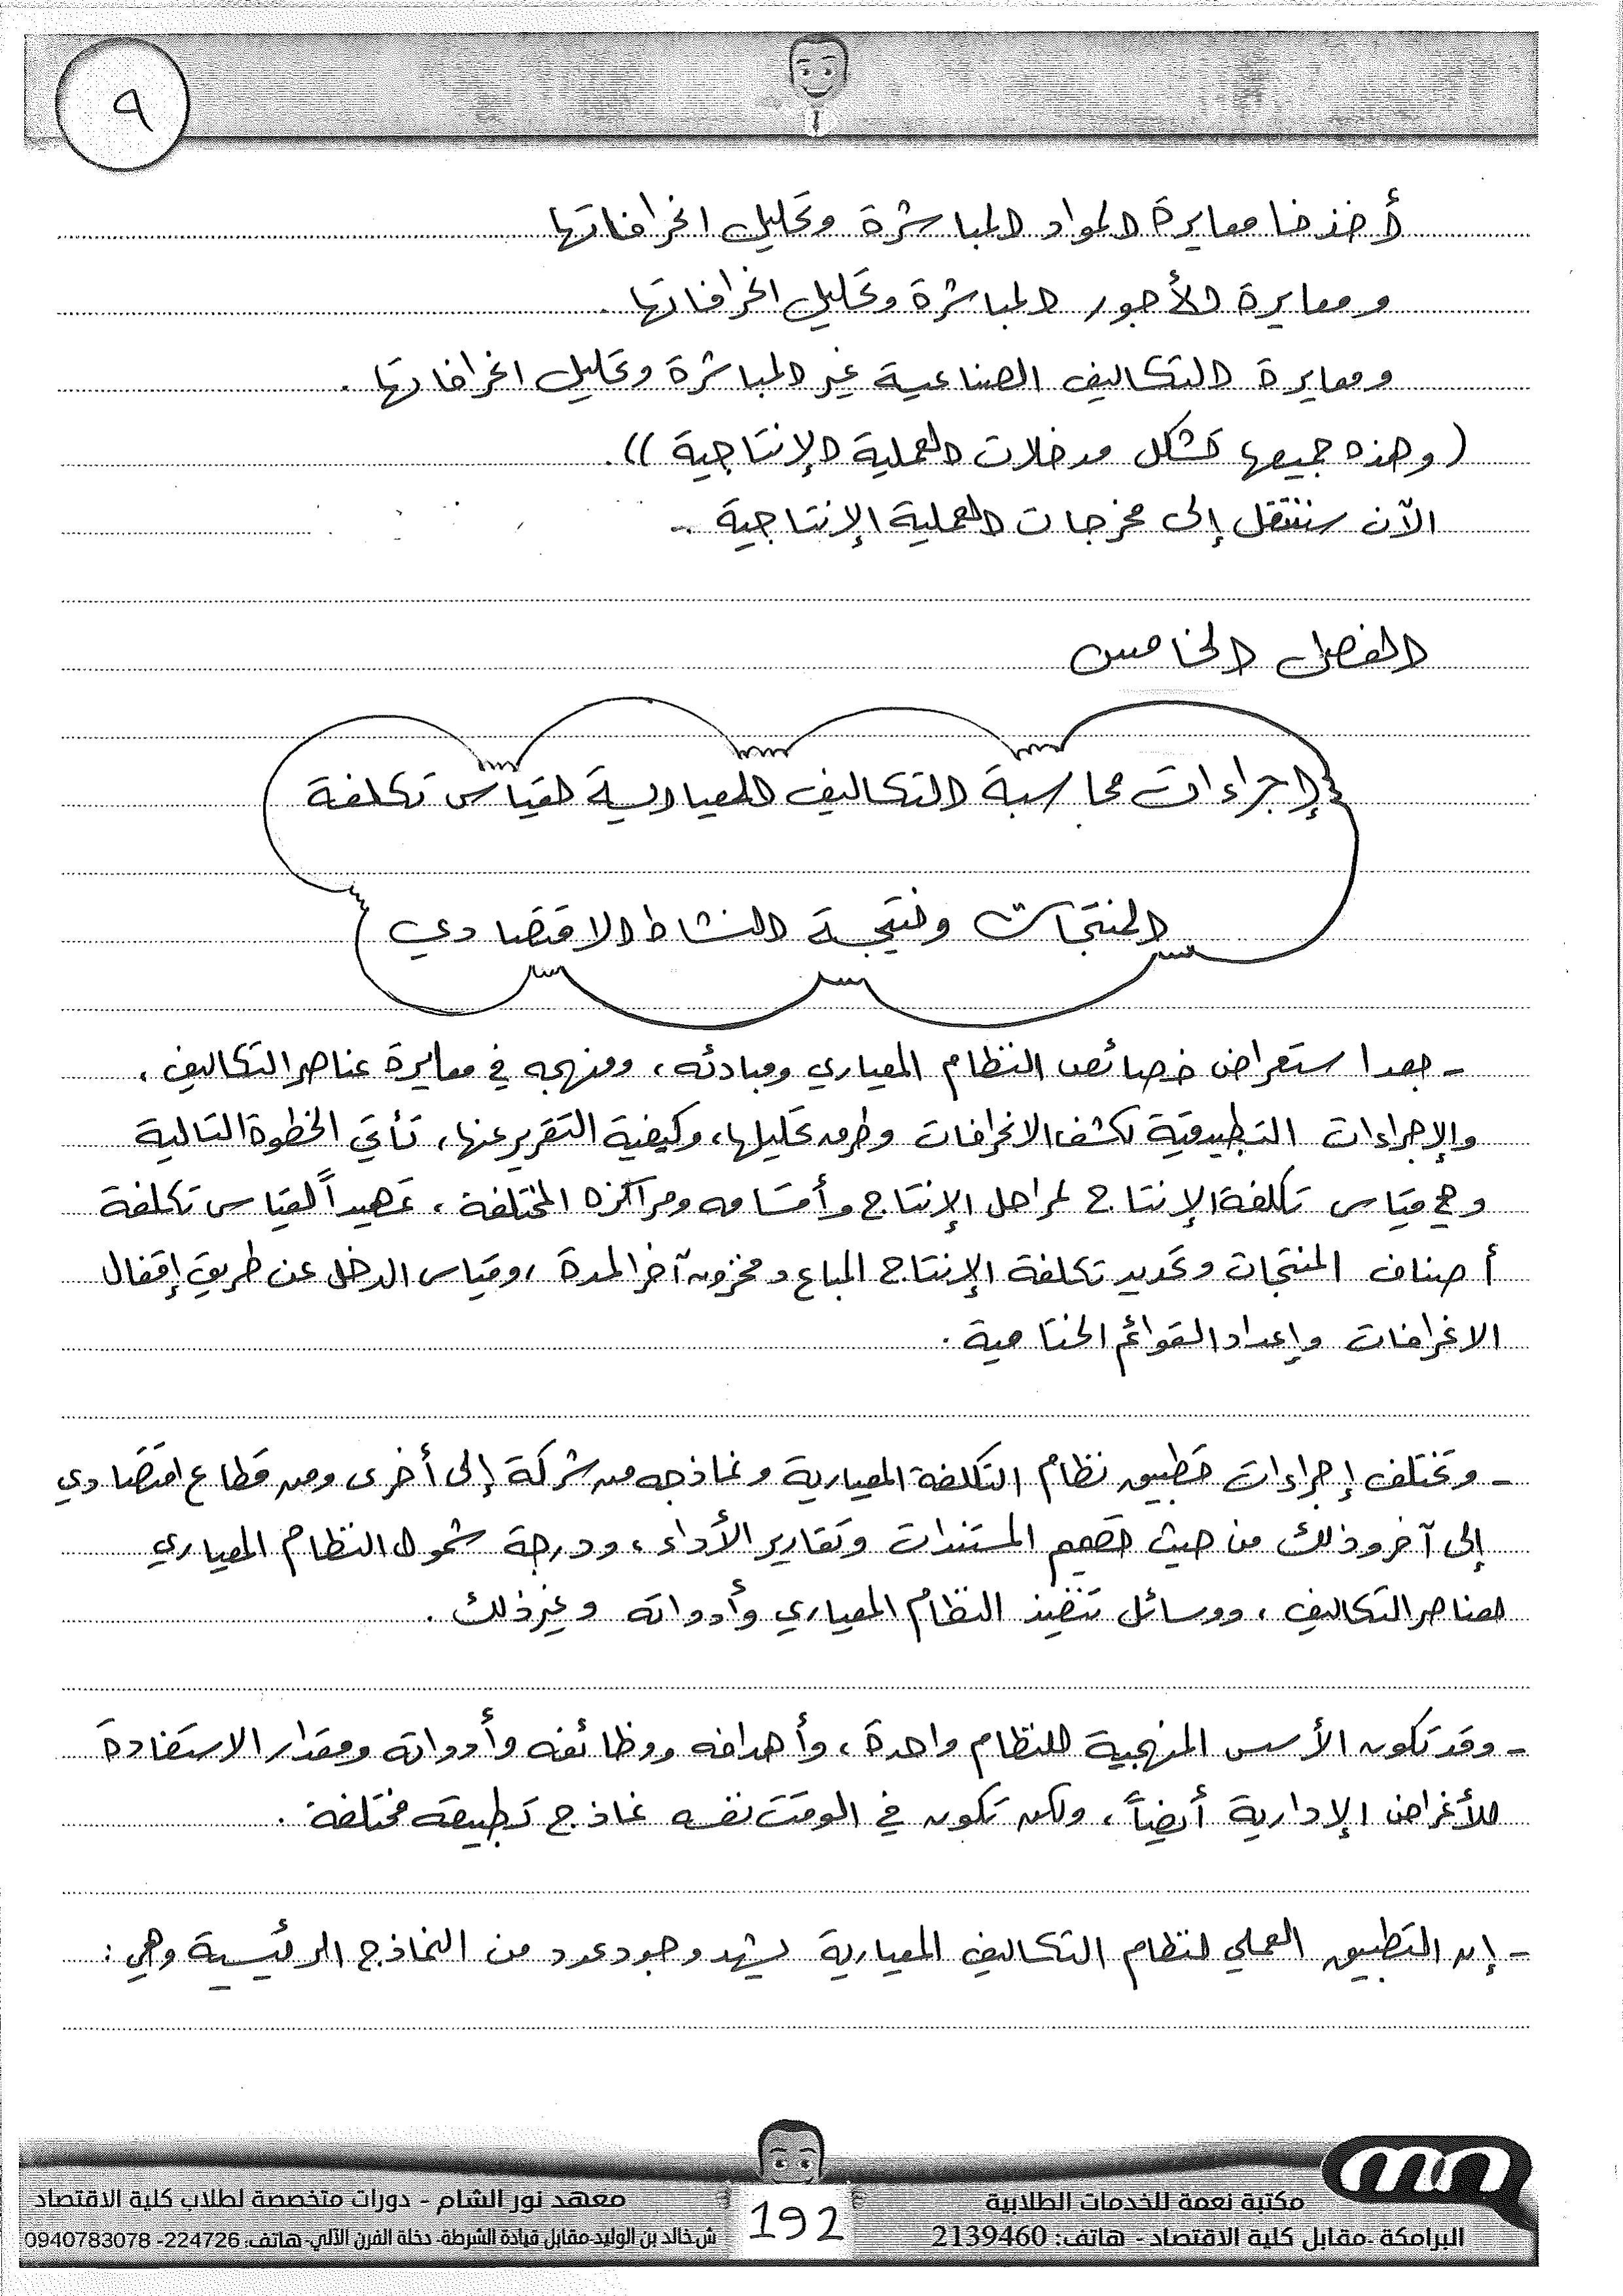 ٩
أخذنا معايرة المواد المباشرة وتحليل انحرافاتها
ومعايرة الأجور المباشرة وتحليل انحرافاتها .
ومعايرة التكاليف الصناعية غير المباشرة وتحليل انحرافاتها .
( وهذه جميعها تشكل مدخلات العملية الإنتاجية )) .
الآن سننتقل إلى مخرجات العملية الإنتاجية ..
الفصل الخامس
إجراءات محاسبة التكاليف المعيارية لقياس تكلفة
المنتجات ونتيجة النشاط الاقتصادي
- بعد استعراض خصائص النظام المعياري ومبادئه ، ومنهجه في معايرة عناصر التكاليف ،
والإجراءات التطبيقية لكشف الانحرافات وطرق تحليلها ، وكيفية التقرير عنها ، تأتي الخطوة التالية
وهي قياس تكلفة الإنتاج لمراحل الإنتاج وأقسامه ومراكزه المختلفة ، تمهيداً لقياس تكلفة
أصناف المنتجات وتحديد تكلفة الإنتاج المباع ومخزون آخر المدة ، وقياس الدخل عن طريق إقفال
الانحرافات وإعداد القوائم الختامية .
- وتختلف إجراءات تطبيق نظام التكلفة المعيارية ونماذجه من شركة إلى أخرى ومن قطاع اقتصادي
إلى آخر وذلك من حيث تصميم المستندات وتقارير الأداء ، ودرجة شمول النظام المعياري
لعناصر التكاليف ، ووسائل تنفيذ النظام المعياري وأدواته وغير ذلك .
- وقد تكون الأسس المنهجية للنظام واحدة ، وأهدافه ووظائفه وأدواته ومقدار الاستفادة
للأغراض الإدارية أيضاً ، ولكن تكون في الوقت نفسه نماذج تطبيقه مختلفة .
- إن التطبيق العملي لنظام التكاليف المعيارية يشهد وجود عدد من النماذج الرئيسية وهي :
مكتبة نعمة للخدمات الطلابية
البرامكة -مقابل كلية الاقتصاد - هاتف: 2139460
192
معهد نور الشام - دورات متخصصة لطلاب كلية الاقتصاد
ش خالد بن الوليد-مقابل قيادة الشرطة- دخلة الفرن الآلي-هاتف: 224726- 0940783078